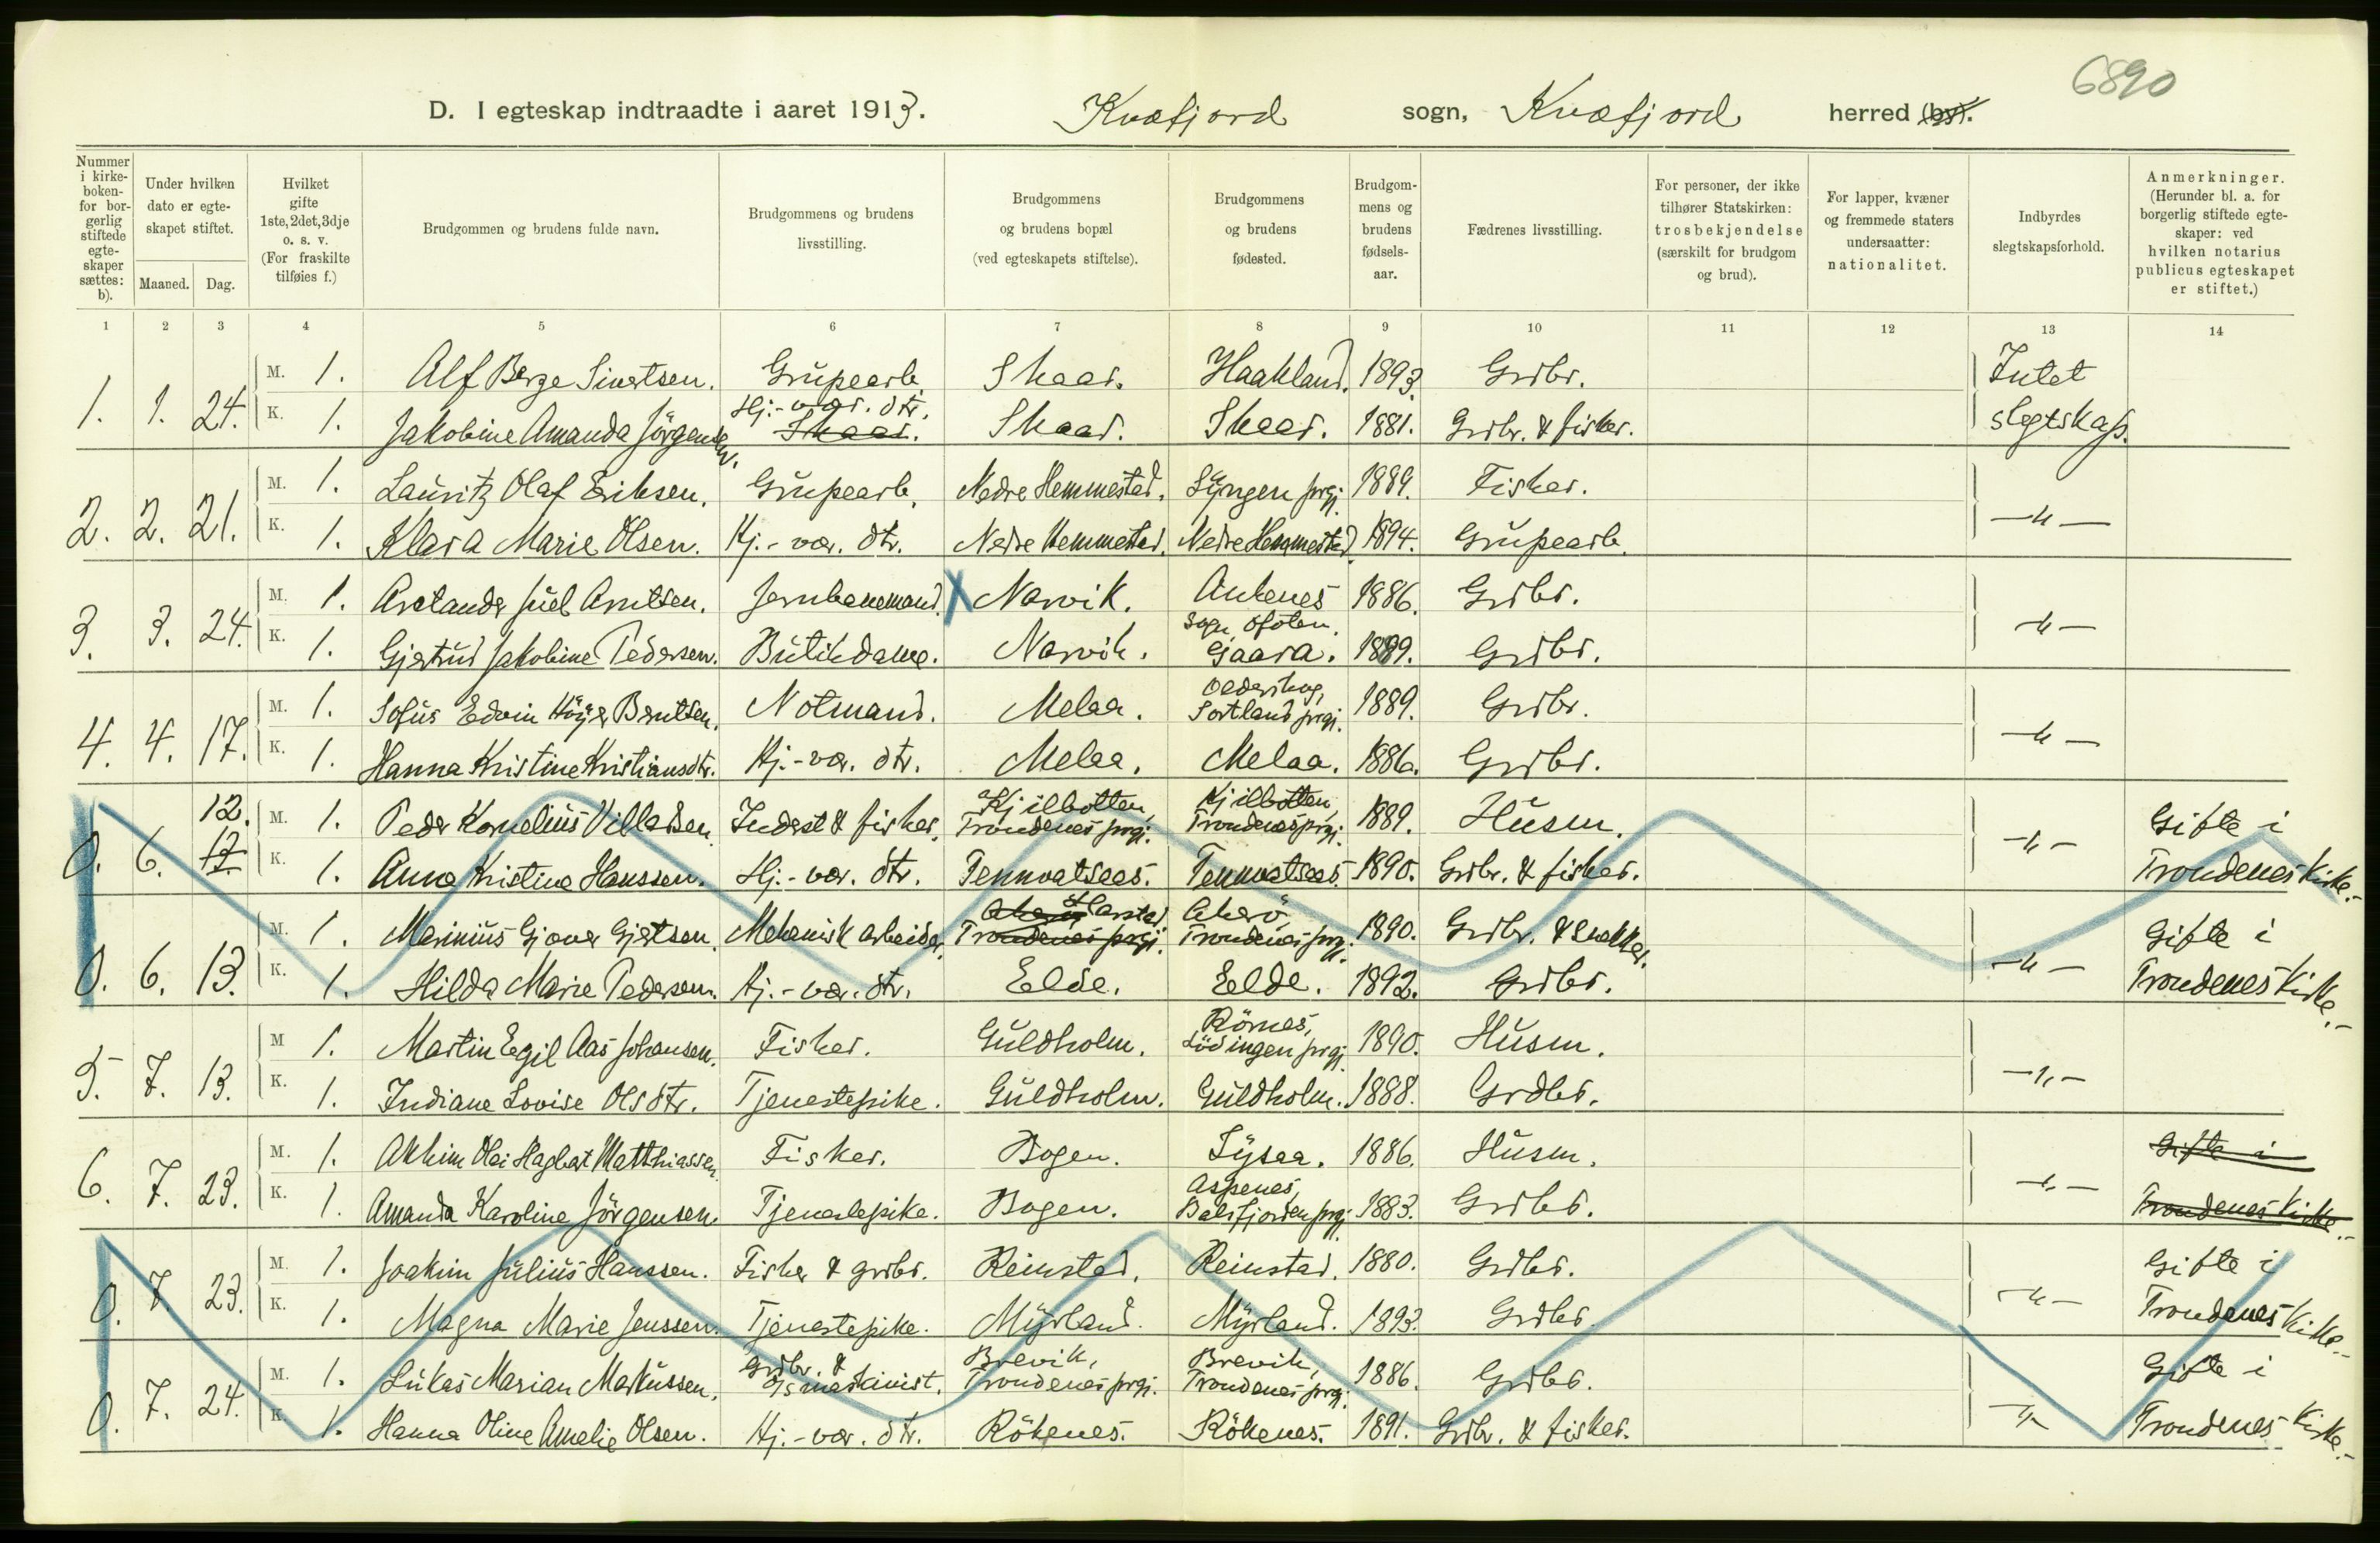 6890
D. I egteskap indtraadte i aaret 1913. Kvæfjord sogn, Kvæfjord herred (by).
Nummer i kirkeboken- for borgerlig stiftede egteskaper sættes: b).
Under hvilken dato er egteskapet stiftet.
Maaned. Dag.
Hvilket gifte 1ste, 2det, 3dje o. s. v. (For fraskilte tilføies f.)
Brudgommen og brudens fulde navn.
Brudgommens og brudens livsstilling.
Brudgommens og brudens bopæl (ved egteskapets stiftelse).
Brudgommens og brudens fødested.
Brudgommens og brudens fødselsaar.
Fædrenes livsstilling.
For personer, der ikke tilhører Statskirken: trosbekjendelse (særskilt for brudgom og brud).
For lapper, kvæner og fremmede staters undersaatter: nationalitet.
Indbyrdes slegtskapsforhold.
Anmerkninger. (Herunder bl. a. for borgerlig stiftede egteskaper: ved hvilken notarius publicus egteskapet er stiftet.)
1 2 3 4 5 6 7 8 9 10 11 12 13 14
1. 1. 24. M. 1. Alf Berge Sivertsen. Grupearb. Skaar. Haakland. 1893. Grdbr. Intet
K. 1. Jakobine Amanda Jörgensen. Hj.-vær. dtr. Skaar. Skaar. Skaar. 1881. Grdbr. & fisker. slegtskap.
2. 2. 21. M. 1. Lauritz Olaf Eriksen. Grupearb. Nedre Hemmestad. Lyngen prgj. 1889. Fisker. —"—
K. 1. Klara Marie Olsen. Hj.-vær. dtr. Nedre Hemmestad. Nedre Hemmestad. 1894. Grupearb.
3. 3. 24. M. 1. Juel Arntsen. Jernbanemand. X Narvik. Ankenes sogn, Ofoten. 1886. Grdbr. —"—
K. 1. Gjertrud Jakobine Pedersen. Butikdame. Narvik. Gaara. 1889. Grdbr.
4. 4. 17. M. 1. Sofus Edvin Höjer Berntsen. Notmand. Melaa. Olderskog, Sortland prgj. 1889. Grdbr. —"—
K. 1. Hanna Kristine Kristiansdtr. Hj.-vær. dtr. Melaa. Melaa. 1886. Grdbr.
0. 6. 12. M. 1. Peder Kornelius Villadsen. Inderst & fisker. Kjilbotten, Trondenes prgj. Kjilbotten, Trondenes prgj. 1889. Husm. —"— Gifte i
K. 1. Anna Kristine Hanssen. Hj.-vær. dtr. Tennvatsees. Tennvatsees. 1890. Grdbr. & fisker. Trondenes Kirke.
0. 6. 13. M. 1. Marinius Gjæver Gjertsen. Mekanisk arbeider. Akerö Harstad Trondenes prgj. Akerö Trondenes prgj. 1890. Grdbr. & snekker. —"— Gifte i
K. 1. Hilda Marie Pedersen. Hj.-vær. dtr. Elde. Elde. 1892. Grdbr. Trondenes Kirke.
5. 7. 13. M 1. Martin Egil Aas Johansen. Fisker. Guldholm. Römes, Lödingen prgj. 1890. Husm. —"—
K. 1. Indiane Lovise Olsdtr. Tjenestepike. Guldholm. Guldholm. 1888. Grdbr.
6. 7. 23. M. 1. Akkim Olai Hagbart Matthiassen. Fisker. Bogen. Lysaa. 1886. Husm. —"— Gifte i
K. 1. Amanda Karoline Jörgensen. Tjenestepike. Bogen. Aspenes, Balsfjorden prgj. 1883. Grdbr. Trondenes Kirke.
0. 7. 23. M. 1. Joakim Julius Hanssen. Fisker & grdbr. Reinstad. Reinstad. 1880. Grdbr. —"— Gifte i
K. 1. Magna Marie Jenssen. Tjenestepike. Myrland. Myrland. 1893. Grdbr. Trondenes Kirke.
0. 7. 24. M. 1. Lukas Marian Markussen. Grdbr. & maskinist. Brevik, Trondenes prgj. Brevik, Trondenes prgj. 1886. Grdbr. —"— Gifte i
K. 1. Hanna Oline Amelie Olsen. Hj.-vær. dtr. Rökenes. Rökenes. 1891. Grdbr. & fisker. Trondenes Kirke.